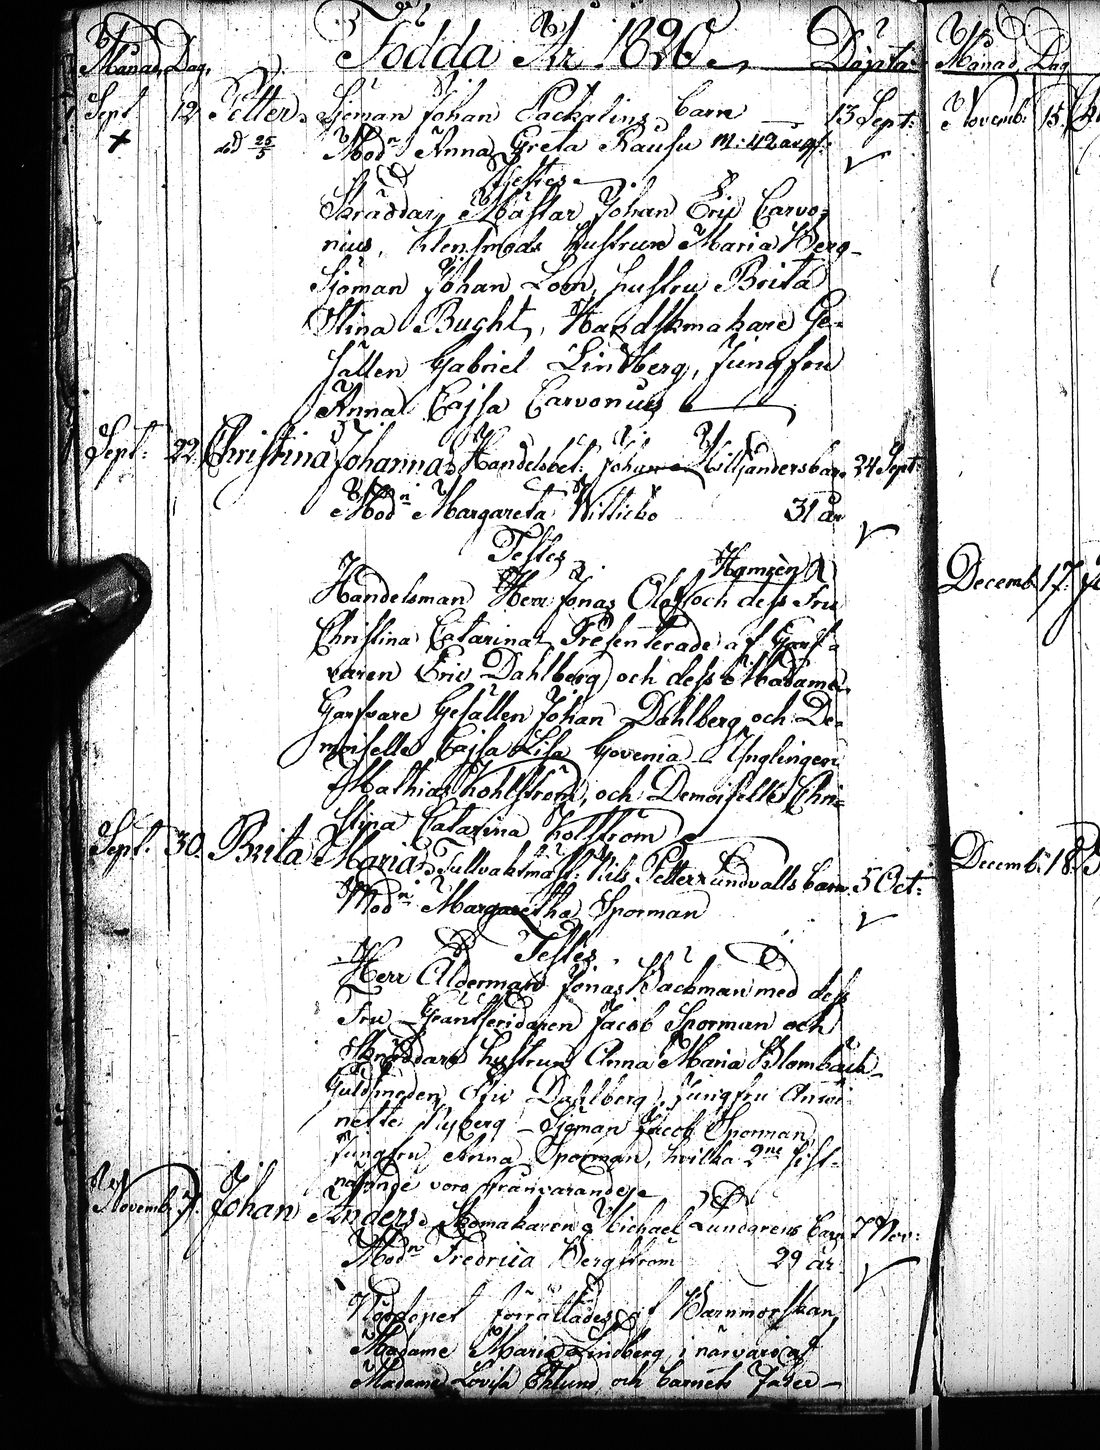 Månad Dag Födda År 1826 Döpta
Sept 12 Petter Sjöman Johan Packalins barn 13 Sept:
död 25/5 Modn Anna Greta Raufu 42
Testes
Skräddar Mästar Johan Eric Carvo-
nius, Klensmeds hustrun Maria Berg
Sjöman Johan Loon, hustru Brita
Stina Bught, Handskmakare Ge-
sällen Gabriel Lindberg, Jungfru
Anna Cajsa Carvonius
Sept: 22 Christina Johanna Handelsbet: Johan Killjanders barn 24 Sept:
Modn Margareta Witticko 31 år
Testes
Handelsman Herr Jonas Olof och dess Fru
Christina Catarina Presenterade af Garf-
varen Eric Dahlberg och dess Madame
Garfvare Gesällen Johan Dahlberg och De-
moiselle Cajsa Lisa Govenia Ynglingen
Mathias Kohlström, och Demoiselle Chri-
stina Catarina Kolström
Sept: 30 Brita Maria Tullvaktmäst: Nils Petter Sundvalls barn 5 Oct:
Modn Margaretha Sporman
Testes
Herr Ålderman Jonas Backman med dess
Fru Jacob Sporman och
Skräddare hustrun Anna Maria Blombäck
Guldsmeden Eric Dahlberg, Jungfru
nette Nyberg Sjöman Jacob Sporman
Jungfru Anna Sporman, hvilka 2ne sist-
nämnde voro frånvarande
Novemb: 7 Johan Anders Skomakaren Michael Lundgrens barn 7 Nov:
Modn Fredrica Bergström 29 år
Nöddopet förrättades af Barnmorskan
Madame Maria Lindberg i närvaro af
Madame Lovisa Eklund och barnets Fader
Månad Dag
Novemb: 15
Decemb: 17
Decemb: 18